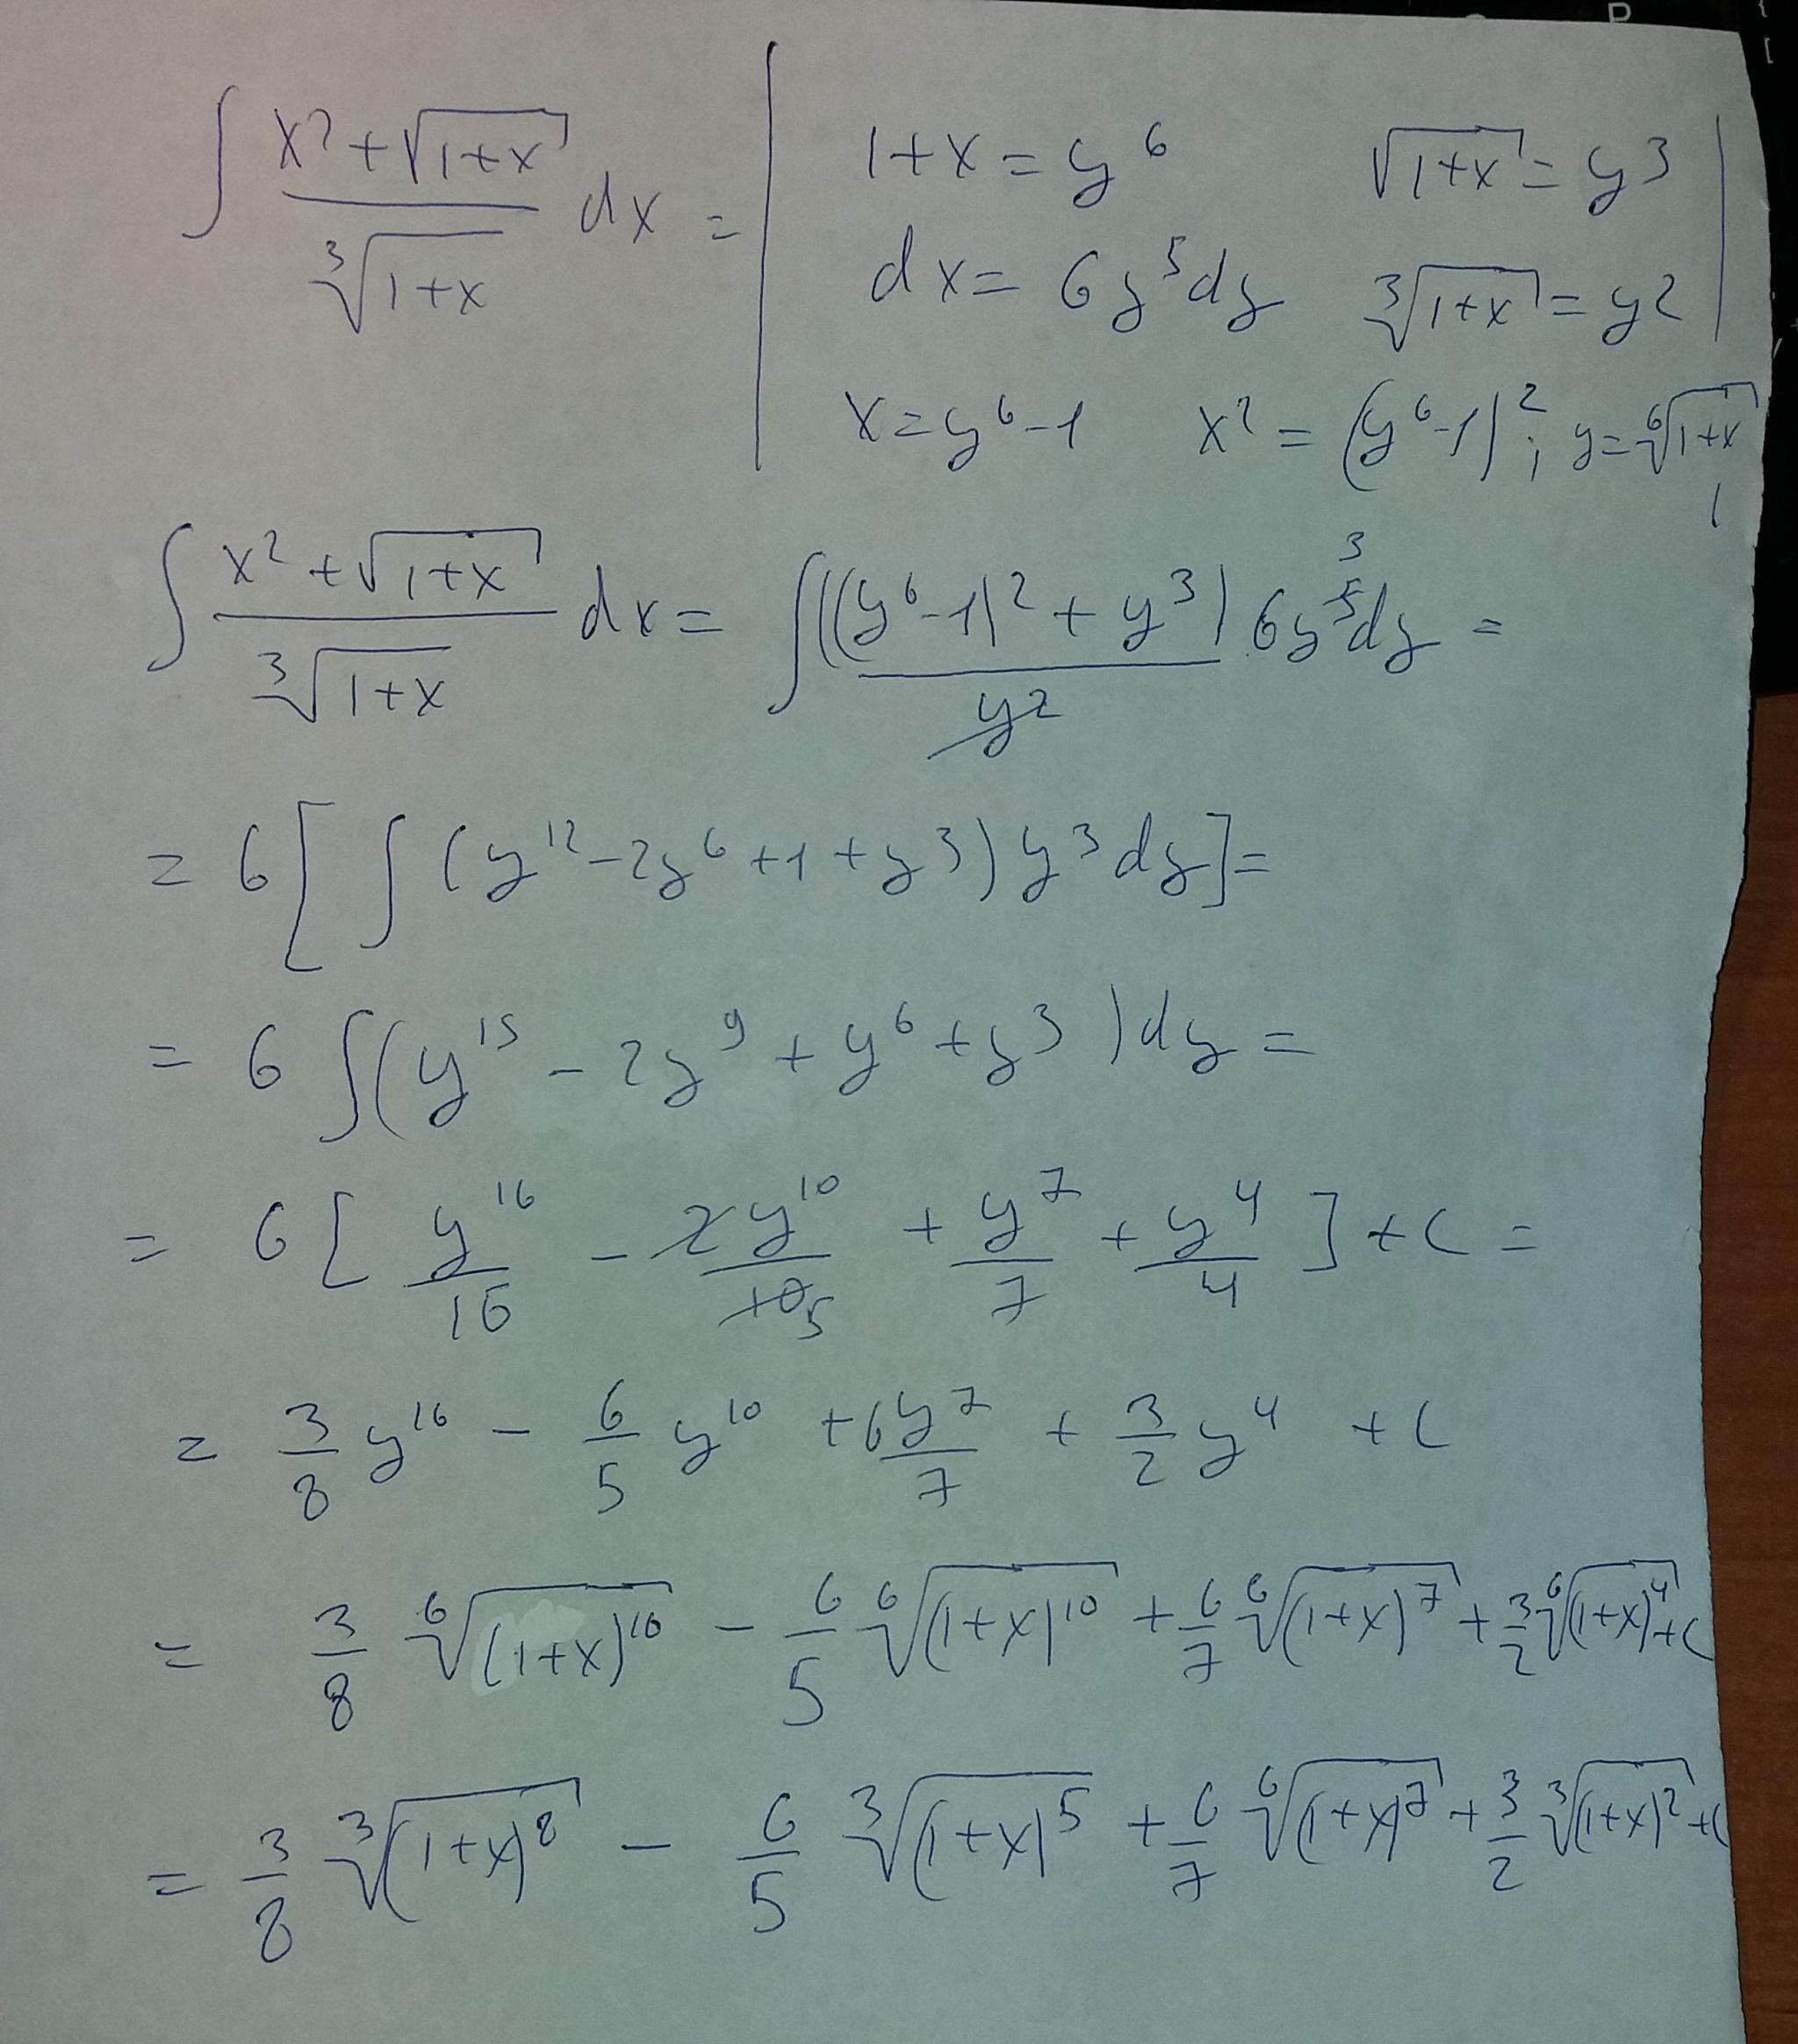 ∫ (x² + √(1+x)) / ∛(1+x) dx = | 1+x = y⁶   √(1+x) = y³ |
dx = 6y⁵dy   ∛(1+x) = y²
x = y⁶-1   x² = (y⁶-1)²; y = ⁶√(1+x)
∫ (x² + √(1+x)) / ∛(1+x) dx = ∫ ((y⁶-1)² + y³) / y² · 6y⁵ ³ dy =
= 6[∫ (y¹² - 2y⁶ + 1 + y³) y³ dy] =
= 6 ∫(y¹⁵ - 2y⁹ + y⁶ + y³) dy =
= 6 [ y¹⁶/16 - 2y¹⁰/10 5 + y⁷/7 + y⁴/4 ] + C =
= 3/8 y¹⁶ - 6/5 y¹⁰ + 6y⁷/7 + 3/2 y⁴ + C
= 3/8 ⁶√(1+x)¹⁶ - 6/5 ⁶√(1+x)¹⁰ + 6/7 ⁶√(1+x)⁷ + 3/2 ⁶√(1+x)⁴ + C
= 3/8 ∛(1+x)⁸ - 6/5 ∛(1+x)⁵ + 6/7 ⁶√(1+x)⁷ + 3/2 ∛(1+x)² + C